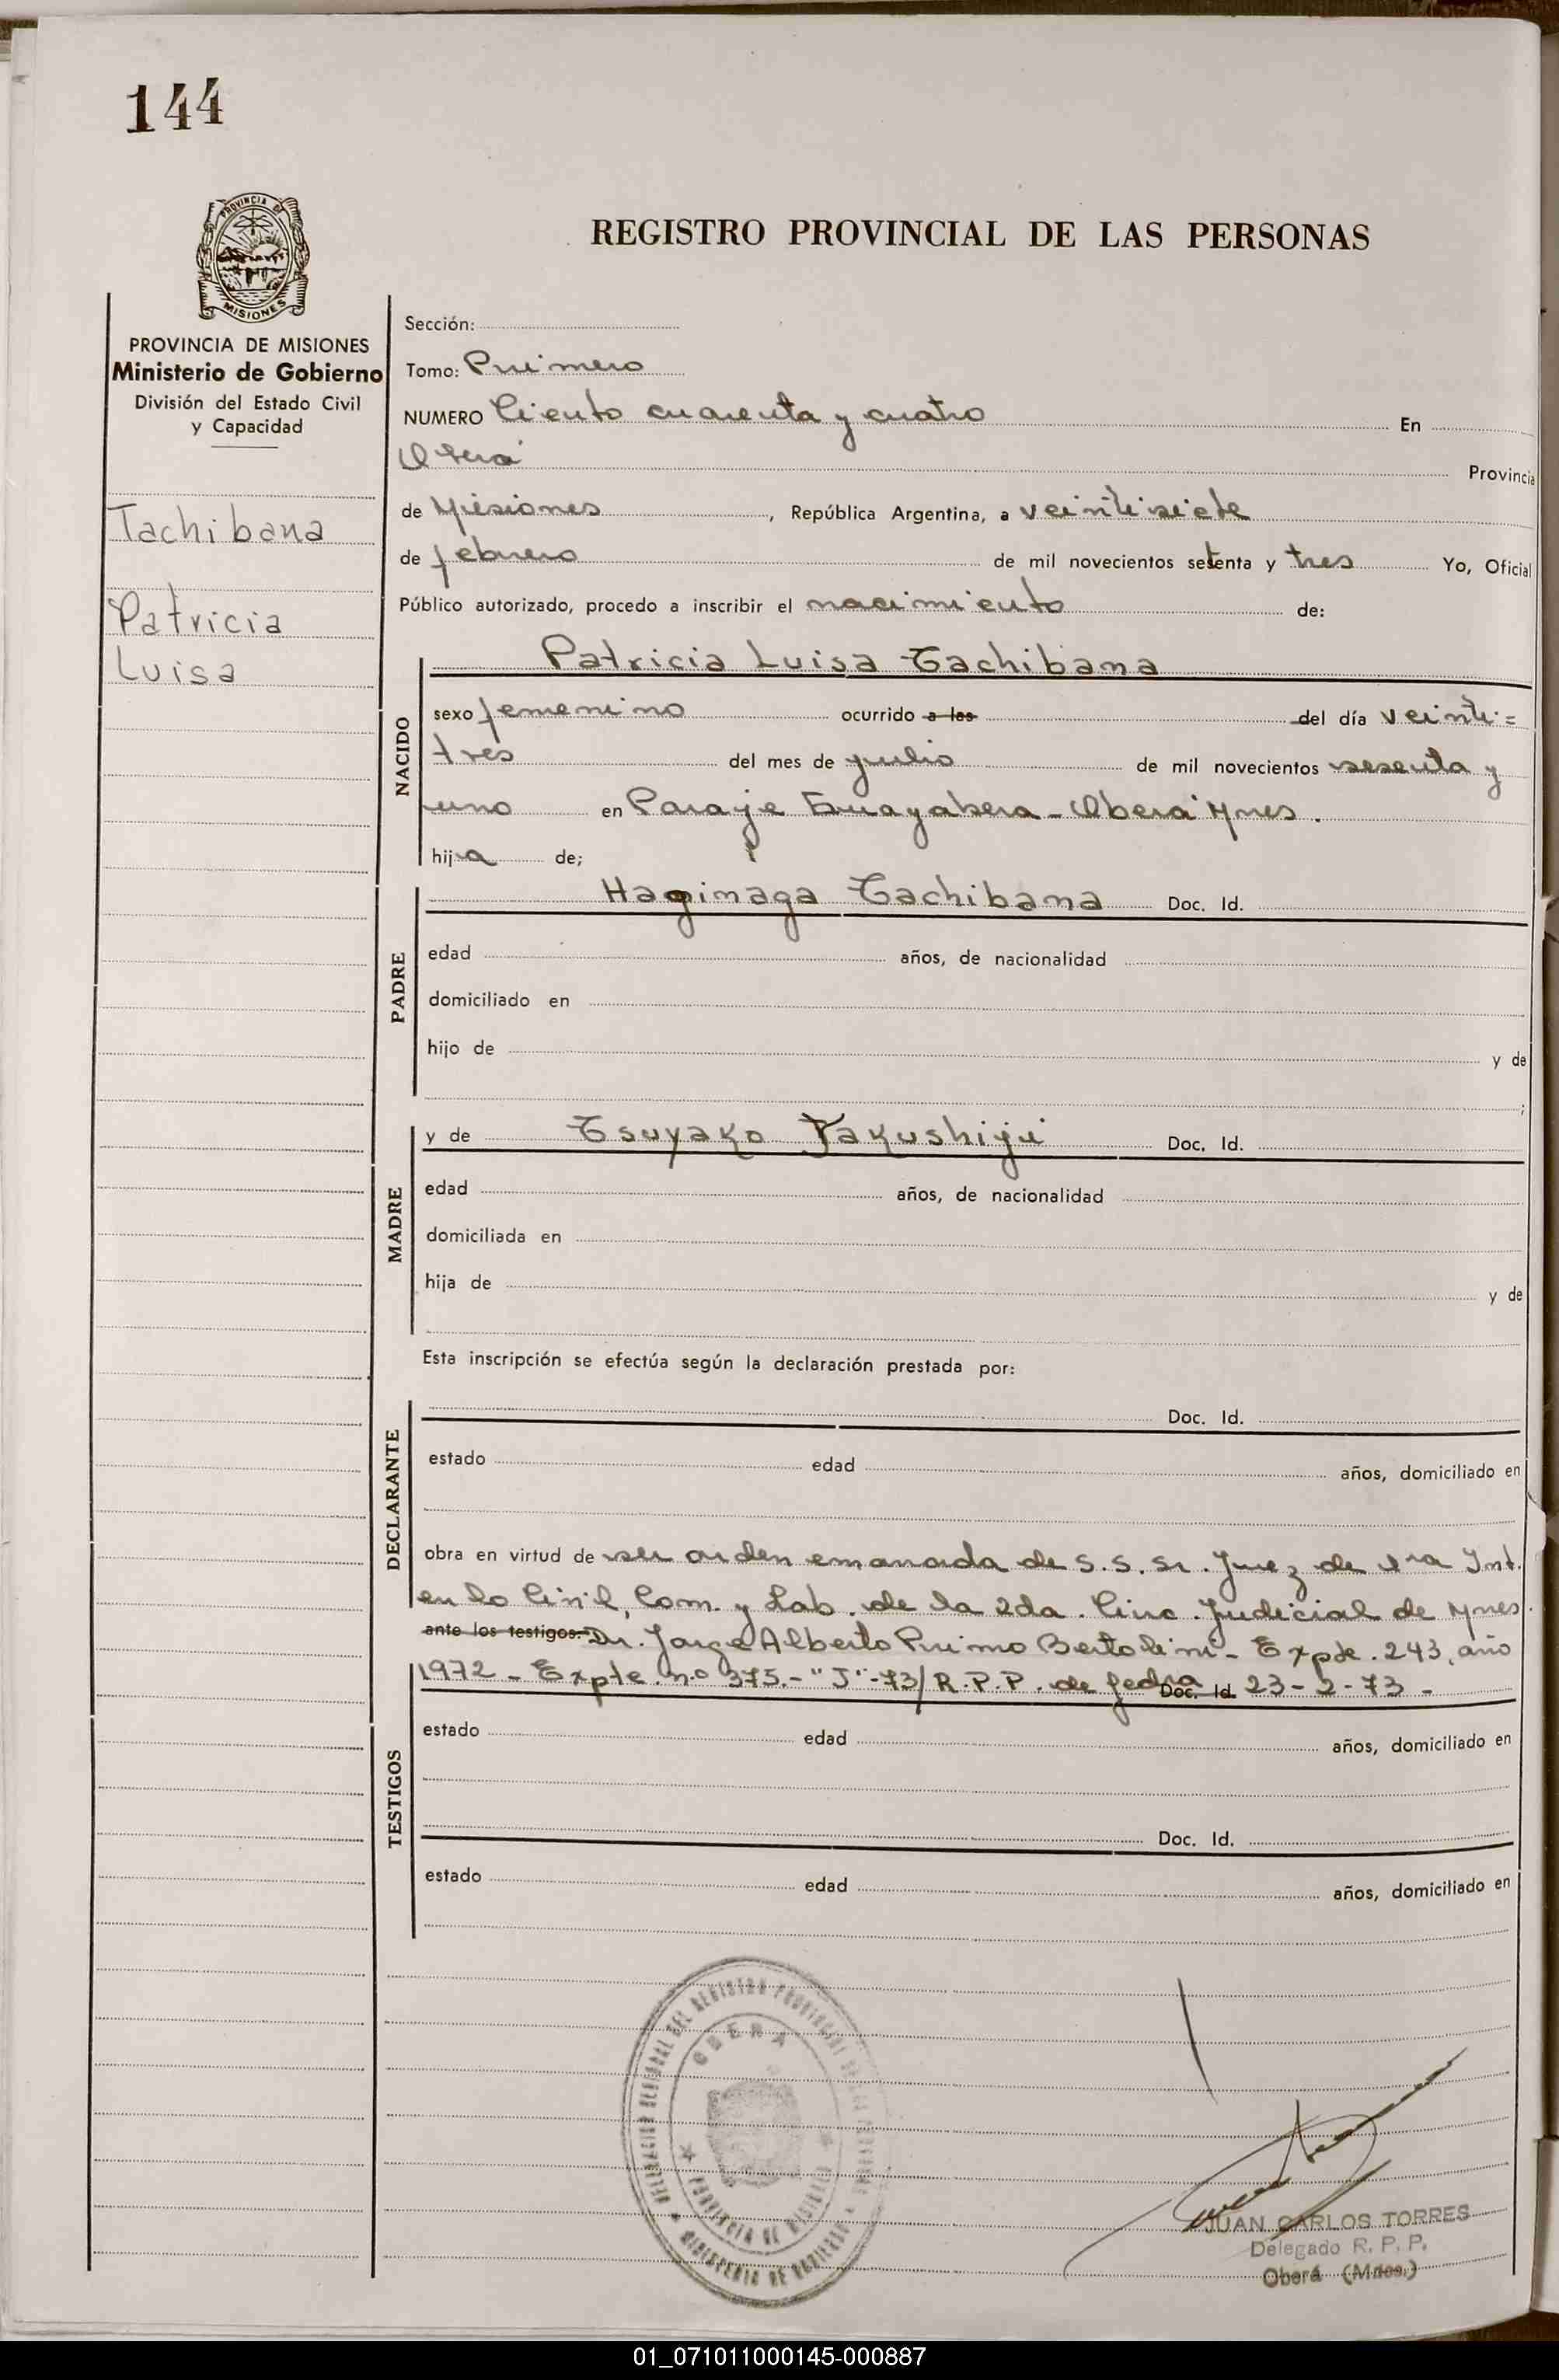 144
PROVINCIA DE
MISIONES
REGISTRO PROVINCIAL DE LAS PERSONAS
PROVINCIA DE MISIONES
Ministerio de Gobierno
División del Estado Civil
y Capacidad
Tachibana
Patricia
Luisa
Sección:
Tomo: Primero
NUMERO Ciento cuarenta y cuatro En
Oberá Provincia
de Misiones, República Argentina, a veintisiete
de febrero de mil novecientos setenta y tres Yo, Oficial
Público autorizado, procedo a inscribir el nacimiento de:
NACIDO
Patricia Luisa Tachibana
sexo femenino ocurrido a las del día veinti=
tres del mes de julio de mil novecientos sesenta y
uno en Paraje Guayabera - Oberá Mnes.
hija de;
PADRE
Haginaga Tachibana Doc. Id.
edad años, de nacionalidad
domiciliado en
hijo de y de
;
MADRE
y de Tsuyako Yakushiji Doc. Id.
edad años, de nacionalidad
domiciliada en
hija de y de
Esta inscripción se efectúa según la declaración prestada por:
DECLARANTE
Doc. Id.
estado edad años, domiciliado en
obra en virtud de ser orden emanada de S.S. Sr. Juez de 1ra Inst.
en lo Civil, Com. y Lab. de la 2da. Circ. Judicial de Mnes.
ante los testigos: Dr. Jorge Alberto Primo Bertolini - Expte. 243, año
1972 - Expte. nº 375.-"J"-73/R.P.P. de fecha Doc. Id. 23-2-73 -
TESTIGOS
estado edad años, domiciliado en
Doc. Id.
estado edad años, domiciliado en
DEL REGISTRO PROVINCIAL
OBERA
PROVINCIA DE MISIONES
JUAN CARLOS TORRES
Delegado R. P. P.
Oberá (Mnes.)
01_071011000145-000887